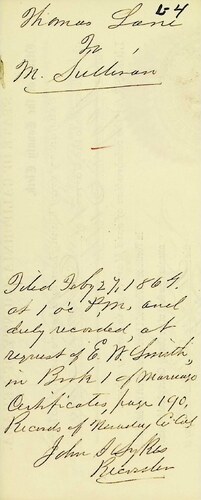 Thomas Lane 54
To
M. Sullivan
Filed Feby 27, 1869.
at 1 o'c P.M, and
duly recorded, at
request of E. W. Smith,
in Book 1 of Marriage
Certificates, page 190,
Records of Nevada Co Cal
John I Sykes
Recorder